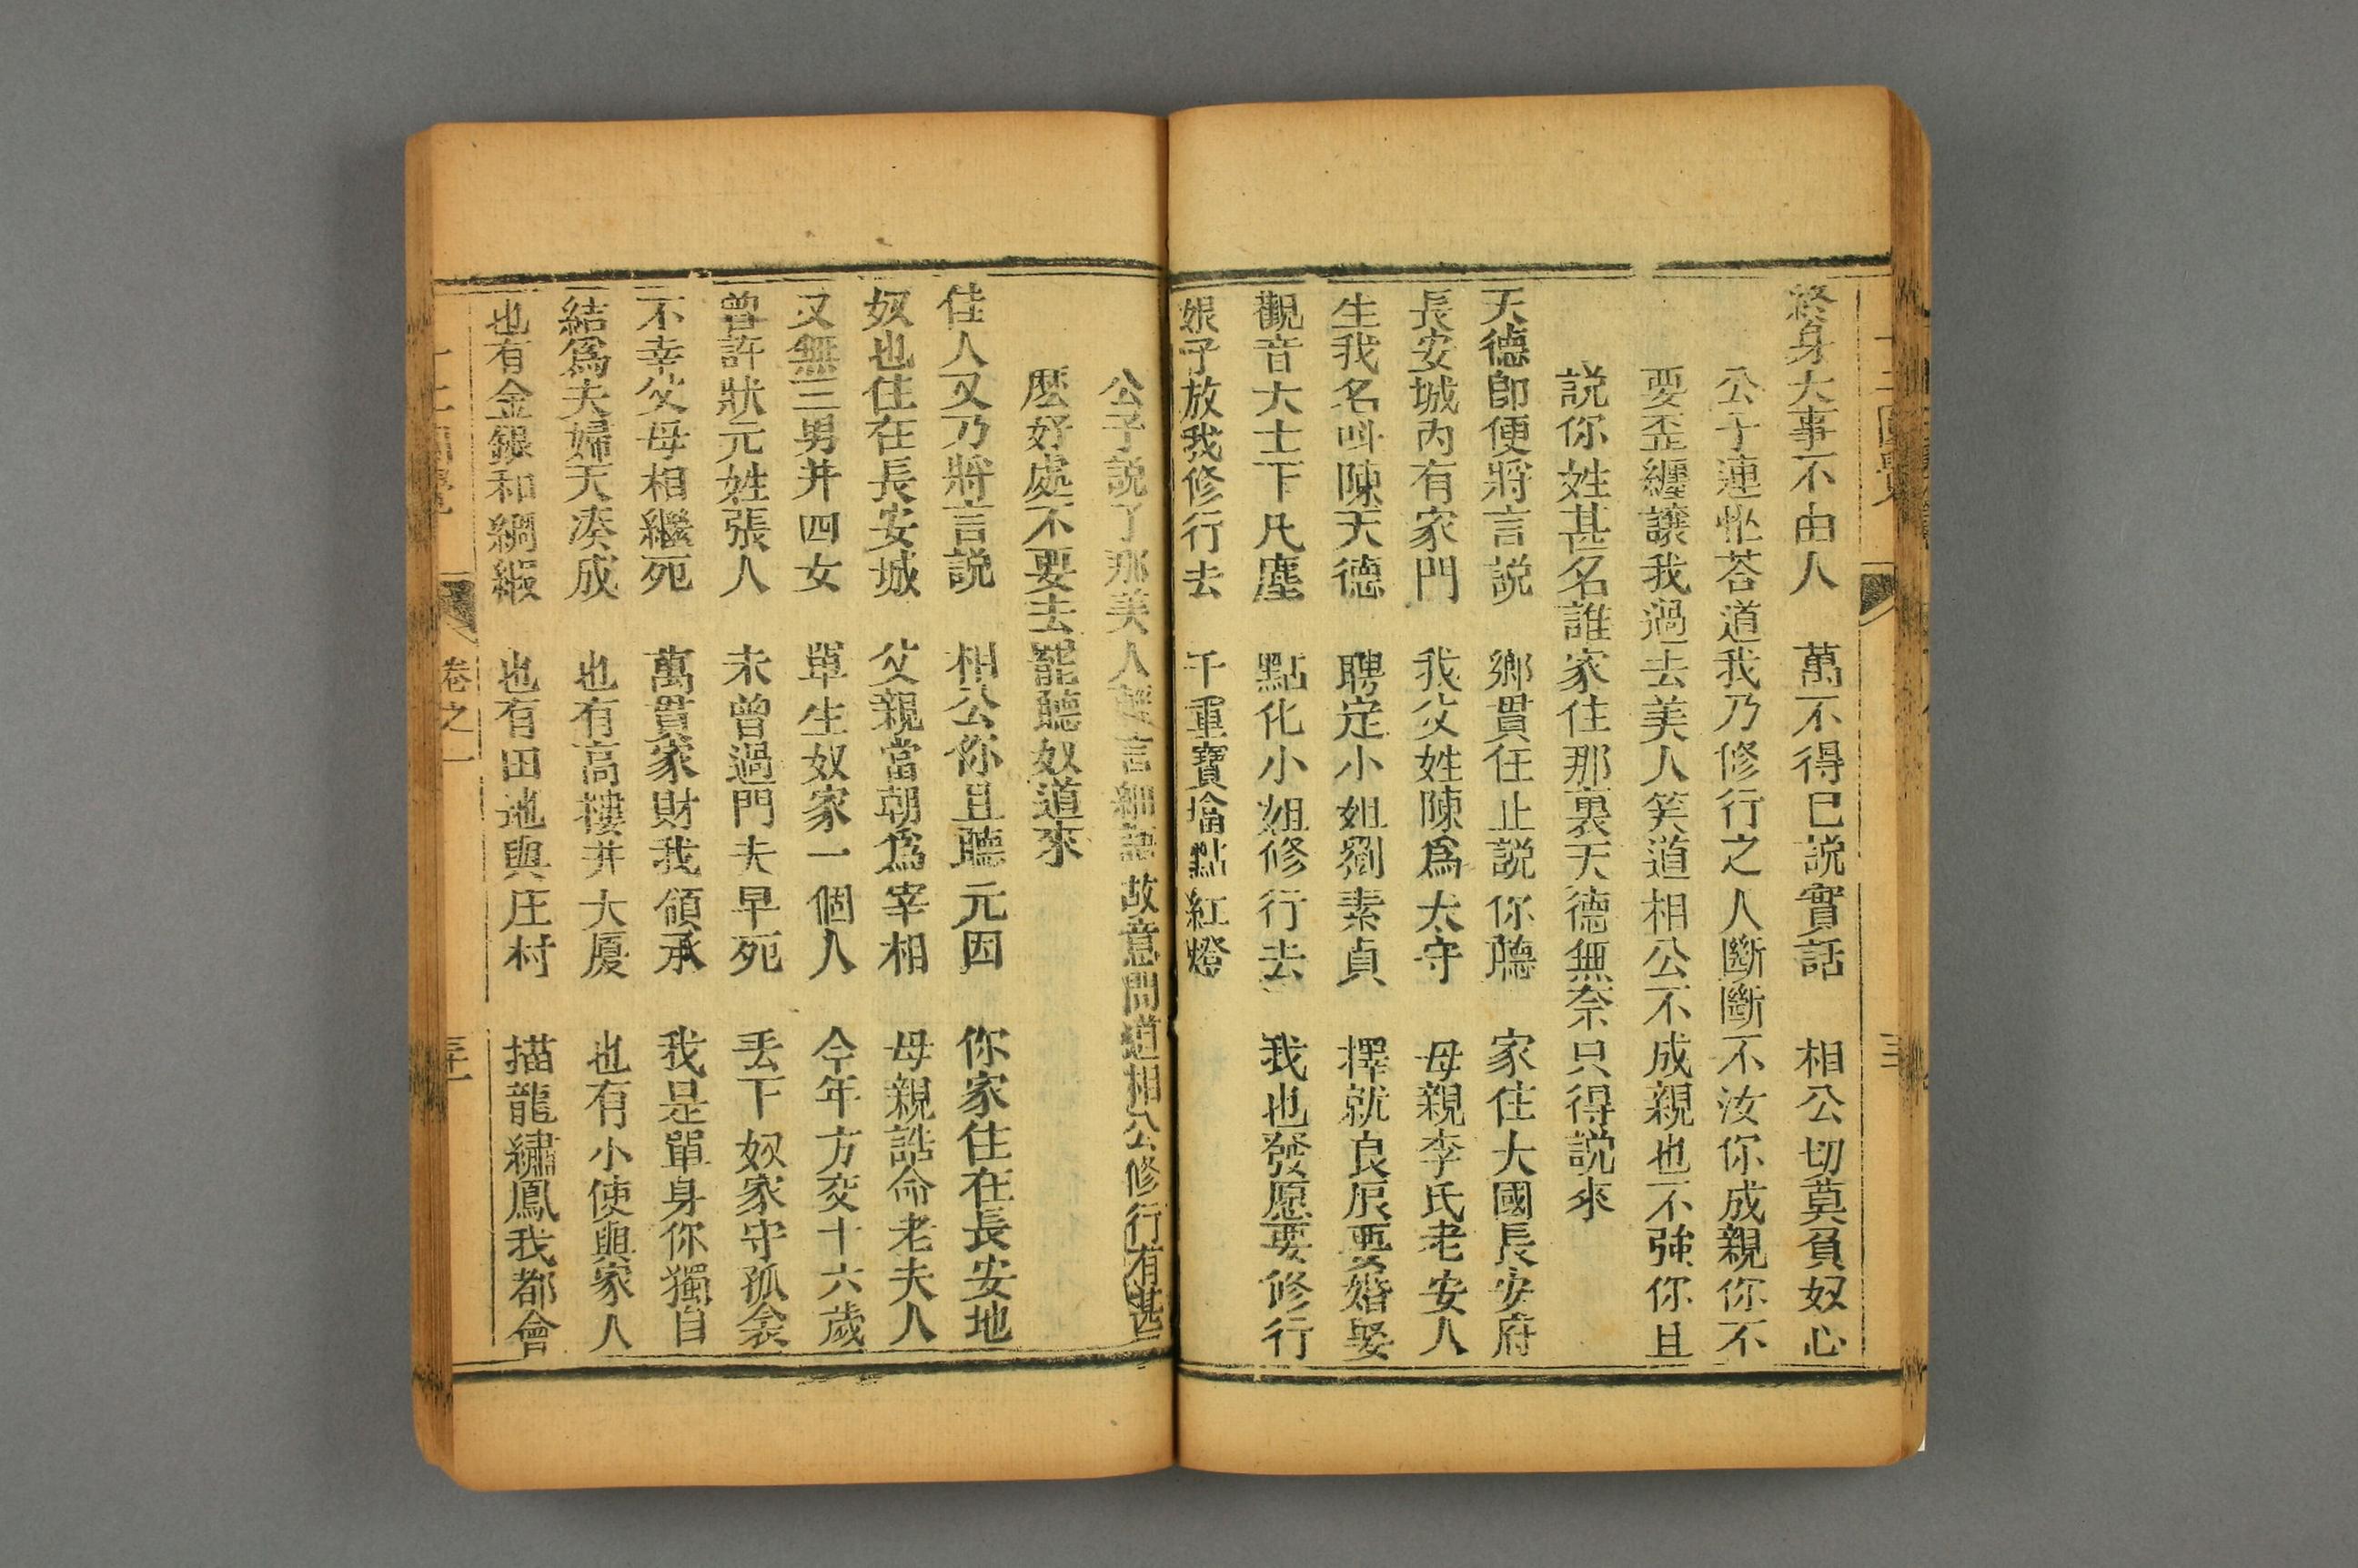 終身大事不由人　萬不得已説實話　相公切莫負奴心
公子連忙荅道我乃修行之人斷斷不汝你成親你不
要歪纏讓我過去美人笑道相公不成親也不強你且
説你姓甚名誰家住那裏天德無奈只得説來
天德卽便將言説　鄉貫住止説你聽　家住大國長安府
長安城内有家門　我父姓陳爲太守　母親李氏老安人
生我名呌陳天德　聘定小姐劉素貞　擇就良辰要婚娶
觀音大士下凡塵　點化小姐修行去　我也發愿要修行
娘子放我修行去　千重寶塔點紅燈
公子説了那美人聽言細語故意問道相公修行有甚
麽好處不要去罷聽奴道來
佳人又乃將言説　相公你且聽元因　你家住在長安地
奴也住在長安城　父親當朝爲宰相　母親誥命老夫人
又無三男并四女　單生奴家一個人　今年方交十六歲
曾許狀元姓張人　未曾過門夫早死　丢下奴家守孤衾
不幸父母相繼死　萬貫家財我領承　我是單身你獨自
結爲夫婦天湊成　也有高樓并大厦　也有小使與家人
也有金銀和綢緞　也有田地與庄村　描龍繡鳳我都會
卷之一